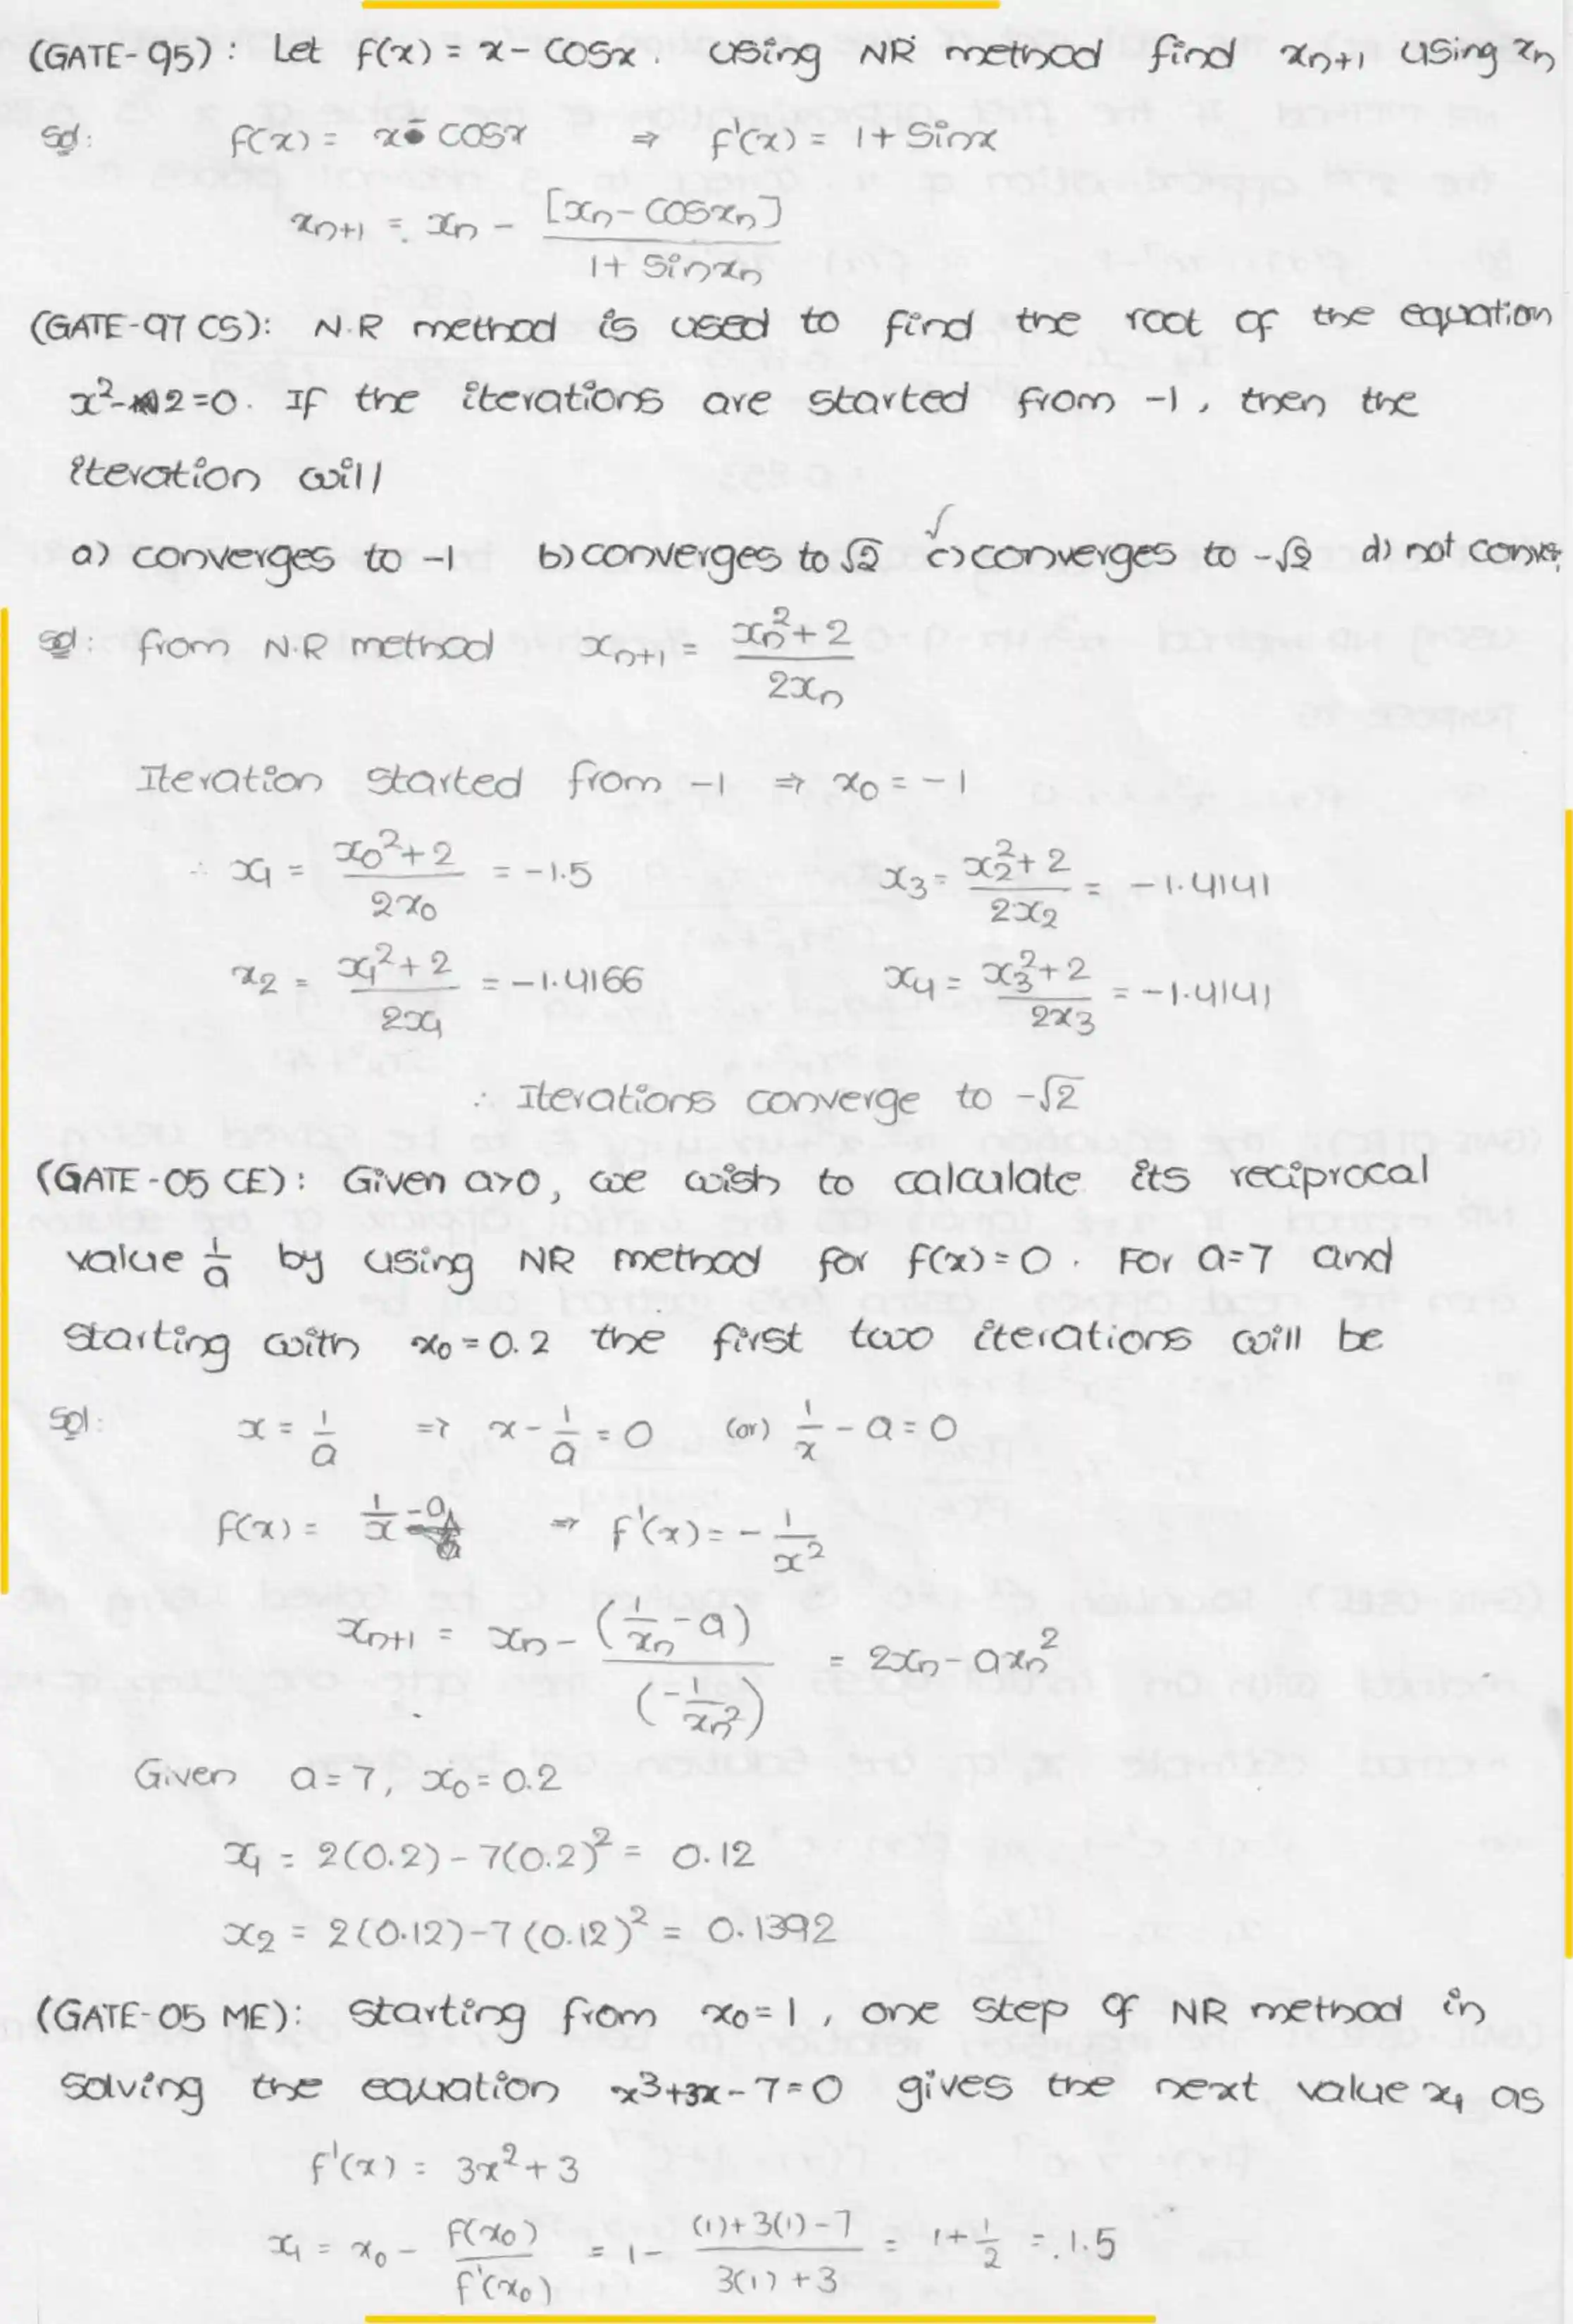 (GATE-95): Let f(x) = x - cosx. using NR method find xn+1 using xn
Sol: f(x) = x - cosx ⇒ f'(x) = 1 + Sinx
xn+1 = xn - [xn - cosxn] / 1 + Sinxn
(GATE-97 CS): N.R method is used to find the root of the equation
x²-2=0. If the iterations are started from -1, then the
iteration will
a) converges to -1 b) converges to √2 c) converges to -√2 d) not conver
Sol: from N.R method xn+1 = xn²+2 / 2xn
Iteration started from -1 ⇒ x0 = -1
∴ x1 = x0²+2 / 2x0 = -1.5 x3 = x2²+2 / 2x2 = -1.4141
x2 = x1²+2 / 2x1 = -1.4166 x4 = x3²+2 / 2x3 = -1.4141
∴ Iterations converge to -√2
(GATE-05 CE): Given a>0, we wish to calculate its reciprocal
value 1/a by using NR method for f(x)=0. For a=7 and
starting with x0=0.2 the first two iterations will be
Sol: x = 1/a ⇒ x - 1/a = 0 (or) 1/x - a = 0
f(x) = 1/x - a ⇒ f'(x) = -1/x²
xn+1 = xn - (1/xn - a) / (-1/xn²) = 2xn - axn²
Given a=7, x0=0.2
x1 = 2(0.2) - 7(0.2)² = 0.12
x2 = 2(0.12) - 7(0.12)² = 0.1392
(GATE-05 ME): Starting from x0=1, one step of NR method in
solving the equation x³+3x-7=0 gives the next value x1 as
f'(x) = 3x²+3
x1 = x0 - f(x0) / f'(x0) = 1 - (1)+3(1)-7 / 3(1)+3 = 1+1/2 = .1.5